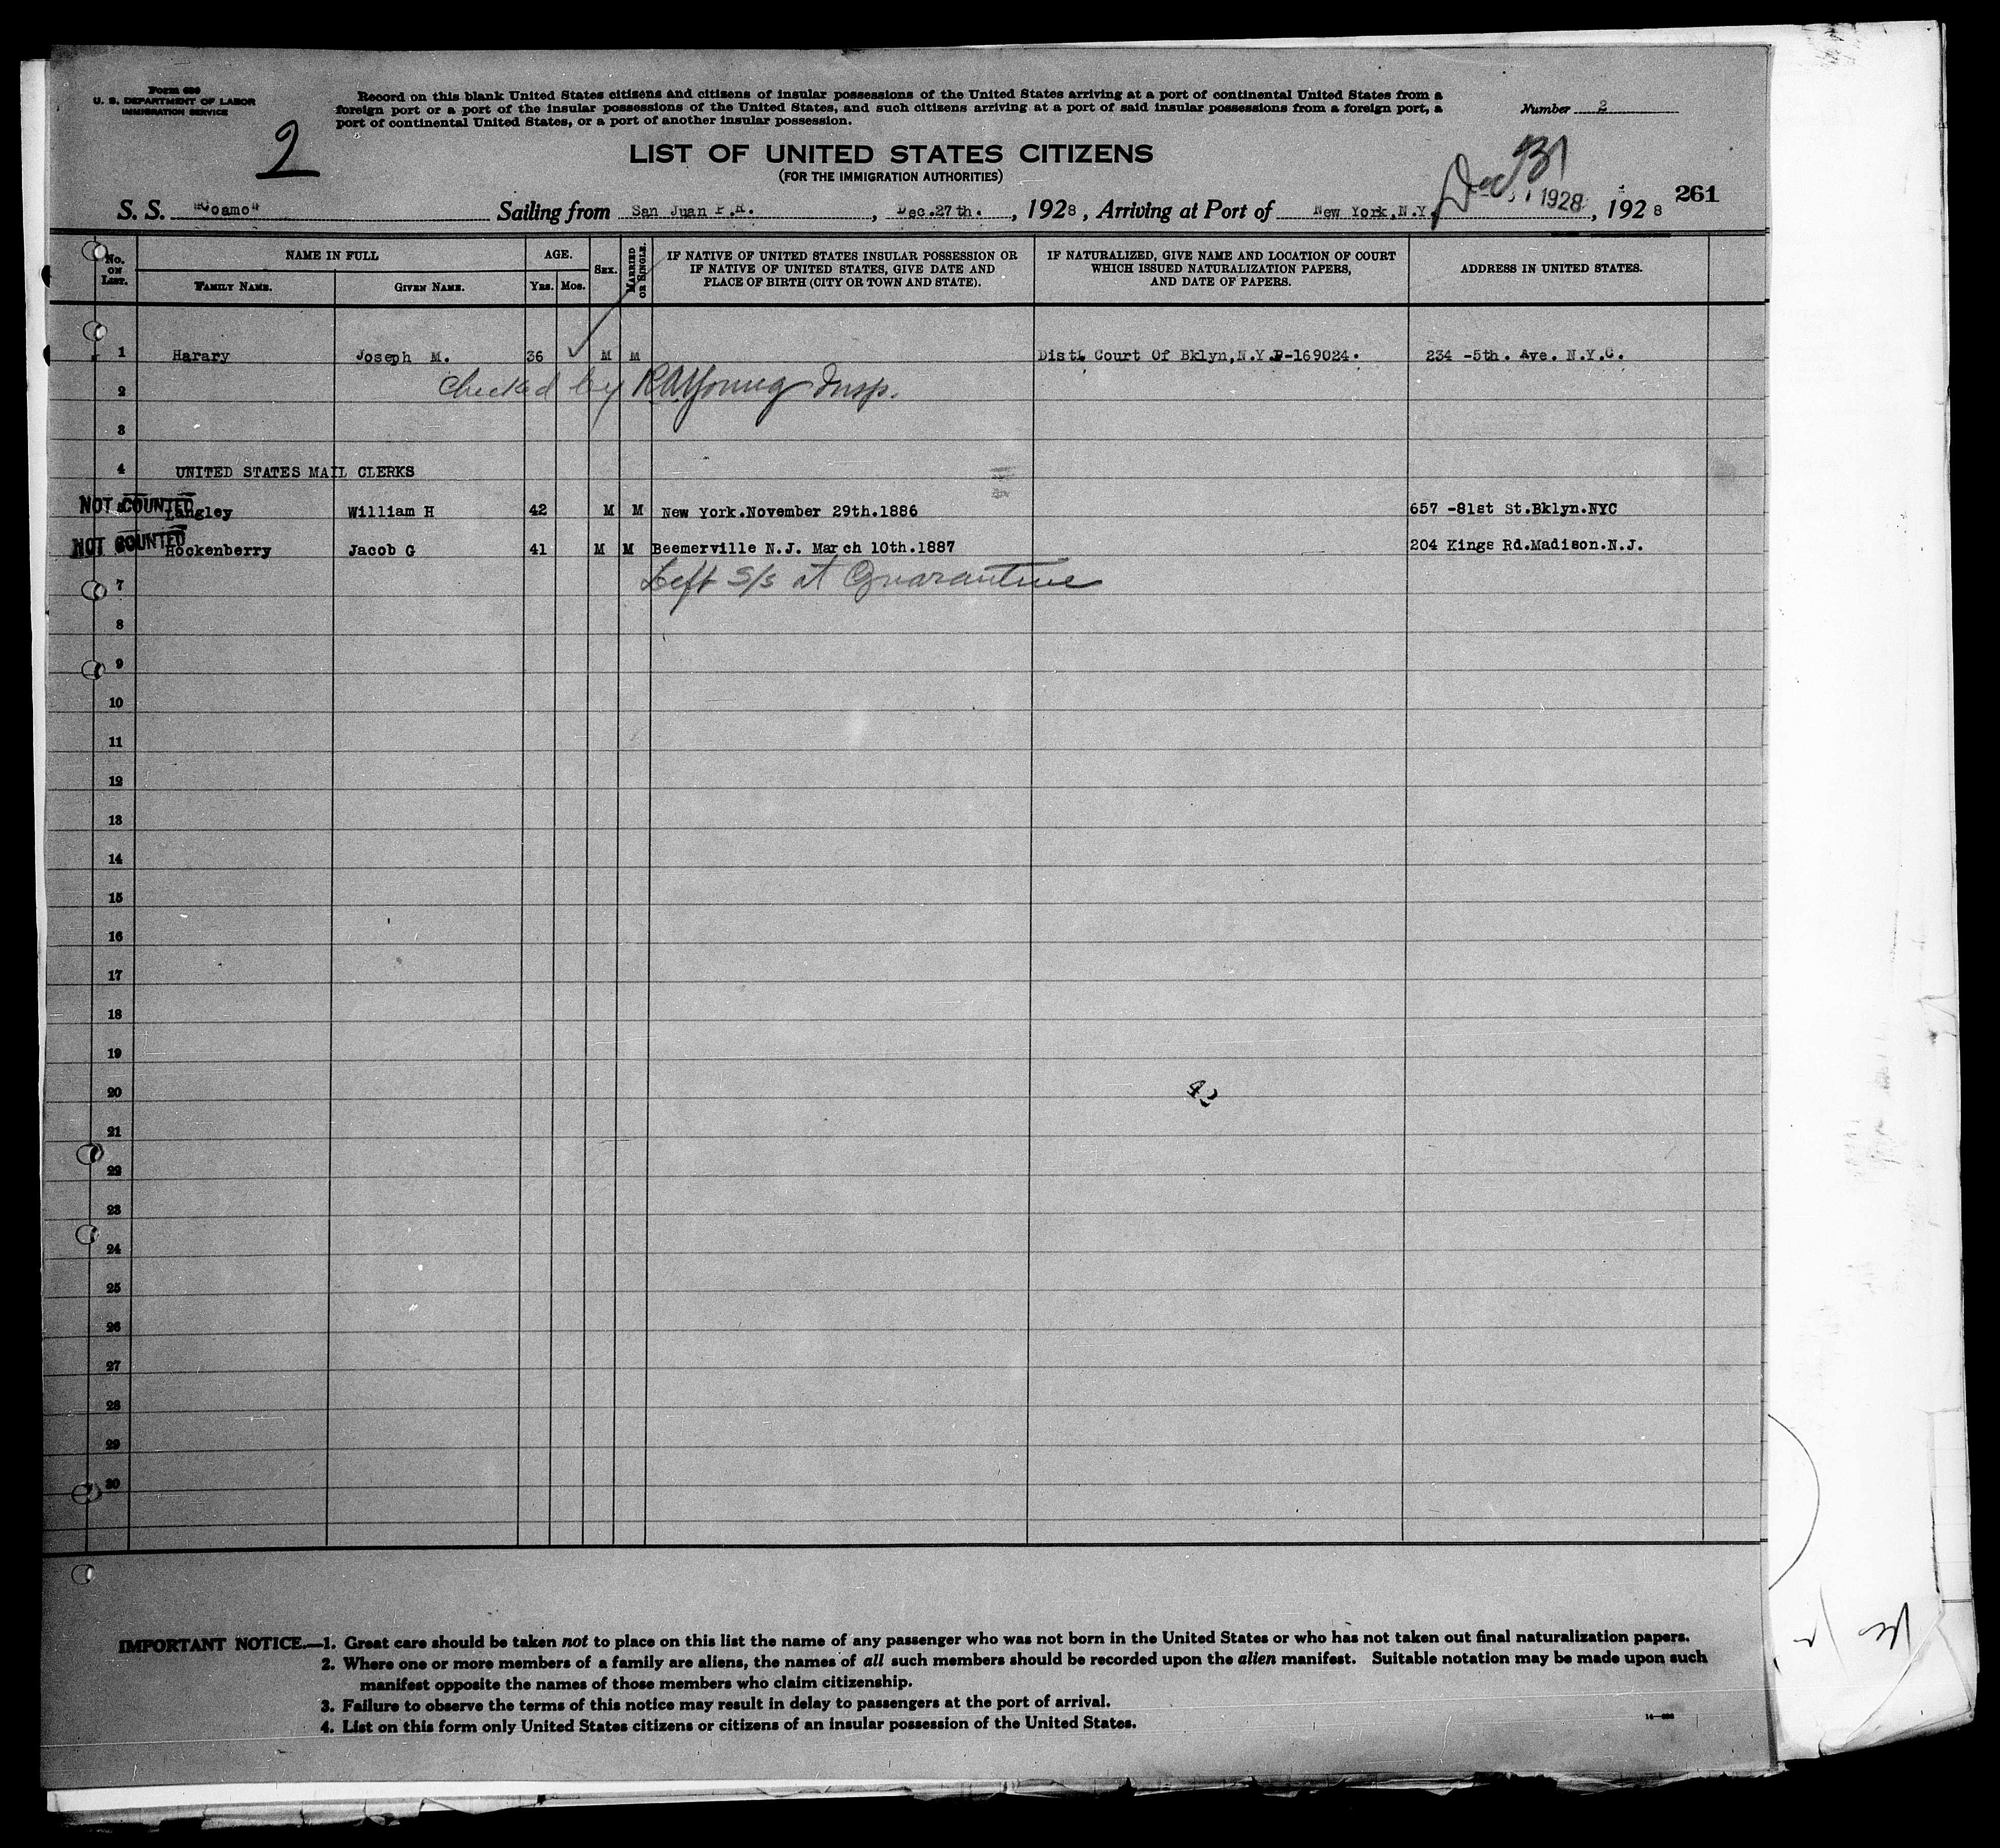 Form 630
U. S. DEPARTMENT OF LABOR
IMMIGRATION SERVICE
Record on this blank United States citizens and citizens of insular possessions of the United States arriving at a port of continental United States from a
foreign port or a port of the insular possessions of the United States, and such citizens arriving at a port of said insular possessions from a foreign port, a
port of continental United States, or a port of another insular possession.
Number 2
2
LIST OF UNITED STATES CITIZENS
(FOR THE IMMIGRATION AUTHORITIES)
Dec 31
1928
261
S. S. "Coamo" Sailing from San Juan P.R. , Dec.27th. , 1928 , Arriving at Port of New York,N.Y. , 1928
No. ON LIST.
NAME IN FULL
FAMILY NAME. GIVEN NAME.
AGE.
YRS. MOS.
SEX.
MARRIED OR SINGLE.
IF NATIVE OF UNITED STATES INSULAR POSSESSION OR
IF NATIVE OF UNITED STATES, GIVE DATE AND
PLACE OF BIRTH (CITY OR TOWN AND STATE).
IF NATURALIZED, GIVE NAME AND LOCATION OF COURT
WHICH ISSUED NATURALIZATION PAPERS,
AND DATE OF PAPERS.
ADDRESS IN UNITED STATES.
1 Harary Joseph M. 36 M M Dist. Court Of Bklyn,N.Y.P-169024. 234 -5th. Ave. N.Y.C.
2 Checked by R.A.Young Insp.
3
4 UNITED STATES MAIL CLERKS
NOT COUNTED Langley William H 42 M M New York.November 29th.1886 657 -81st St.Bklyn.NYC
NOT COUNTED Hockenberry Jacob G 41 M M Beemerville N.J. March 10th.1887 204 Kings Rd.Madison.N.J.
7 Left S/S at Quarantine
8
9
10
11
12
13
14
15
16
17
18
19
20 42
21
22
23
24
25
26
27
28
29
30
IMPORTANT NOTICE.—1. Great care should be taken not to place on this list the name of any passenger who was not born in the United States or who has not taken out final naturalization papers.
2. Where one or more members of a family are aliens, the names of all such members should be recorded upon the alien manifest. Suitable notation may be made upon such
manifest opposite the names of those members who claim citizenship.
3. Failure to observe the terms of this notice may result in delay to passengers at the port of arrival.
4. List on this form only United States citizens or citizens of an insular possession of the United States.